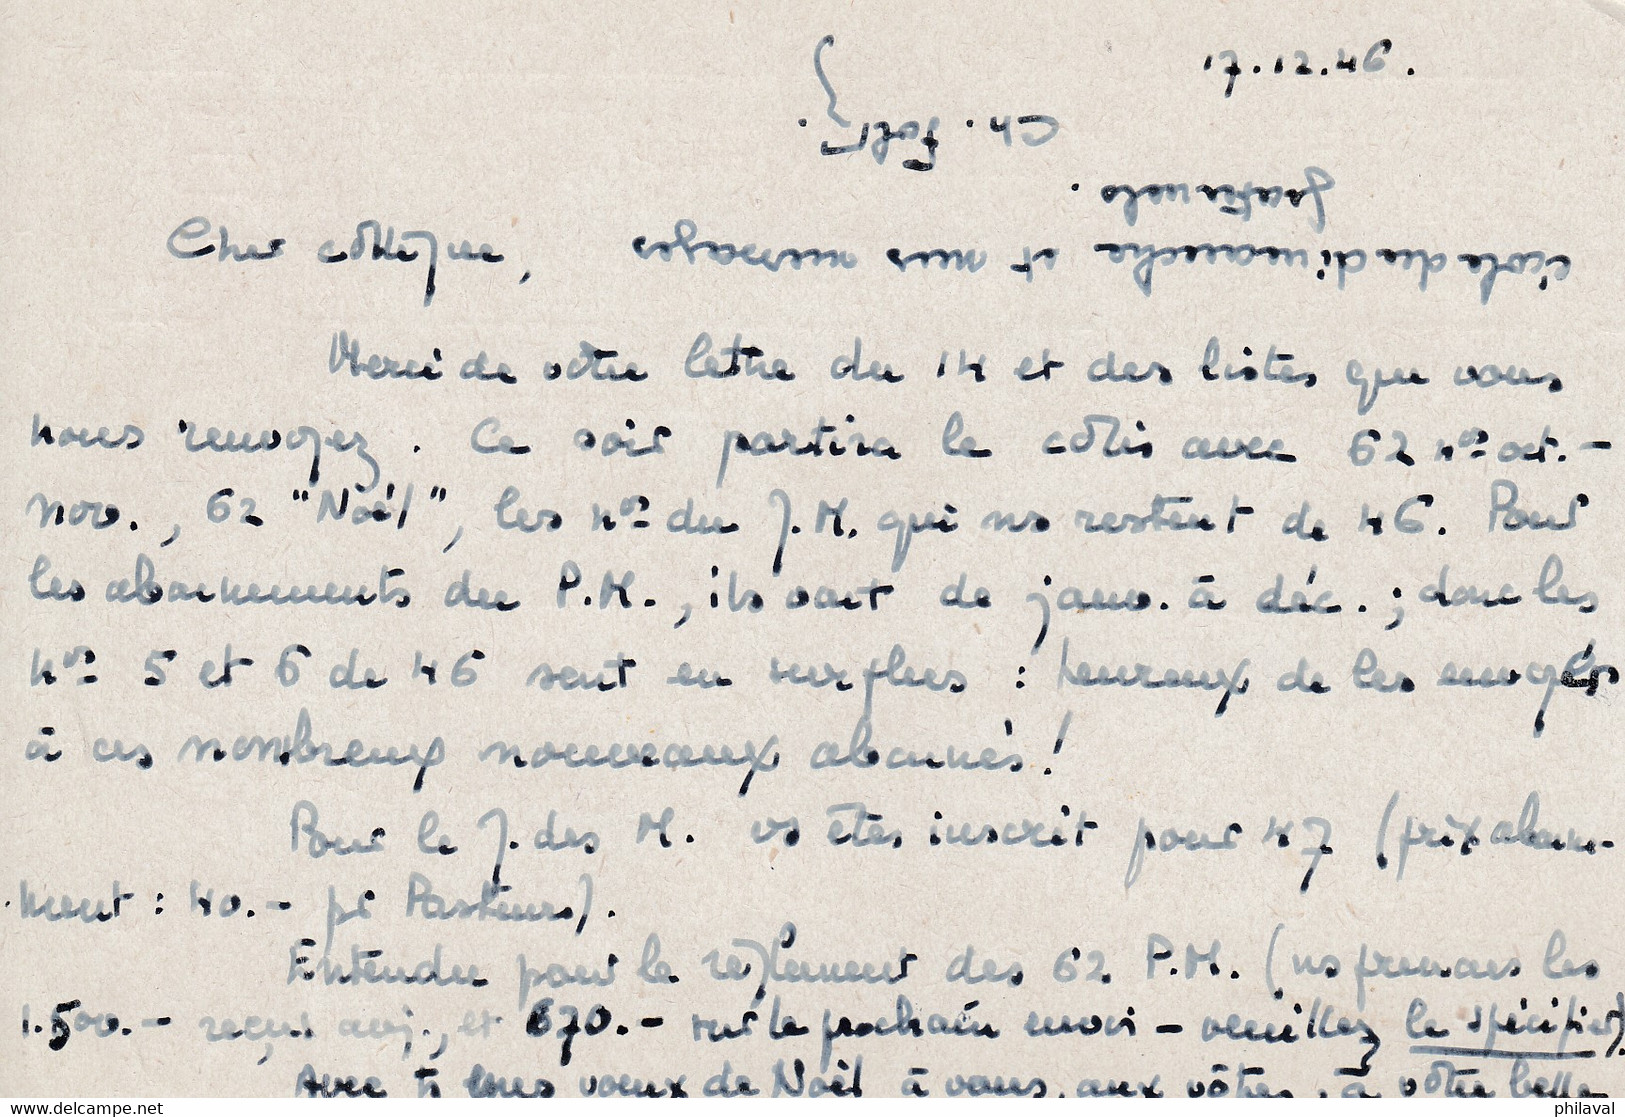 17.12.46.
Cher collègue,
Merci de votre lettre du 14 et des listes que vous
nous renvoyez. Ce soir partira le colis avec 62 nos oct.-
nov., 62 "Noël", les nos du J.M. qui ns restent de 46. Pour
les abonnements du P.M., ils vont de janv. à déc.; donc les
nos 5 et 6 de 46 sont en surplus : heureux de les envoyer
à ces nombreux nouveaux abonnés!
Pour le J. des M. vs êtes inscrit pour 47 (prix abonne-
ment : 40.- pr Pasteurs).
Entendu pour le règlement des 62 P.M. (ns prenons les
1.500.- reçus auj., et 670.- sur le prochain envoi - veuillez le spécifier).
Avec ts nos vœux de Noël à vous, aux vôtres, à votre belle
école du dimanche et mes messages
fraternels.
Ch.
www.delcampe.net
philaval